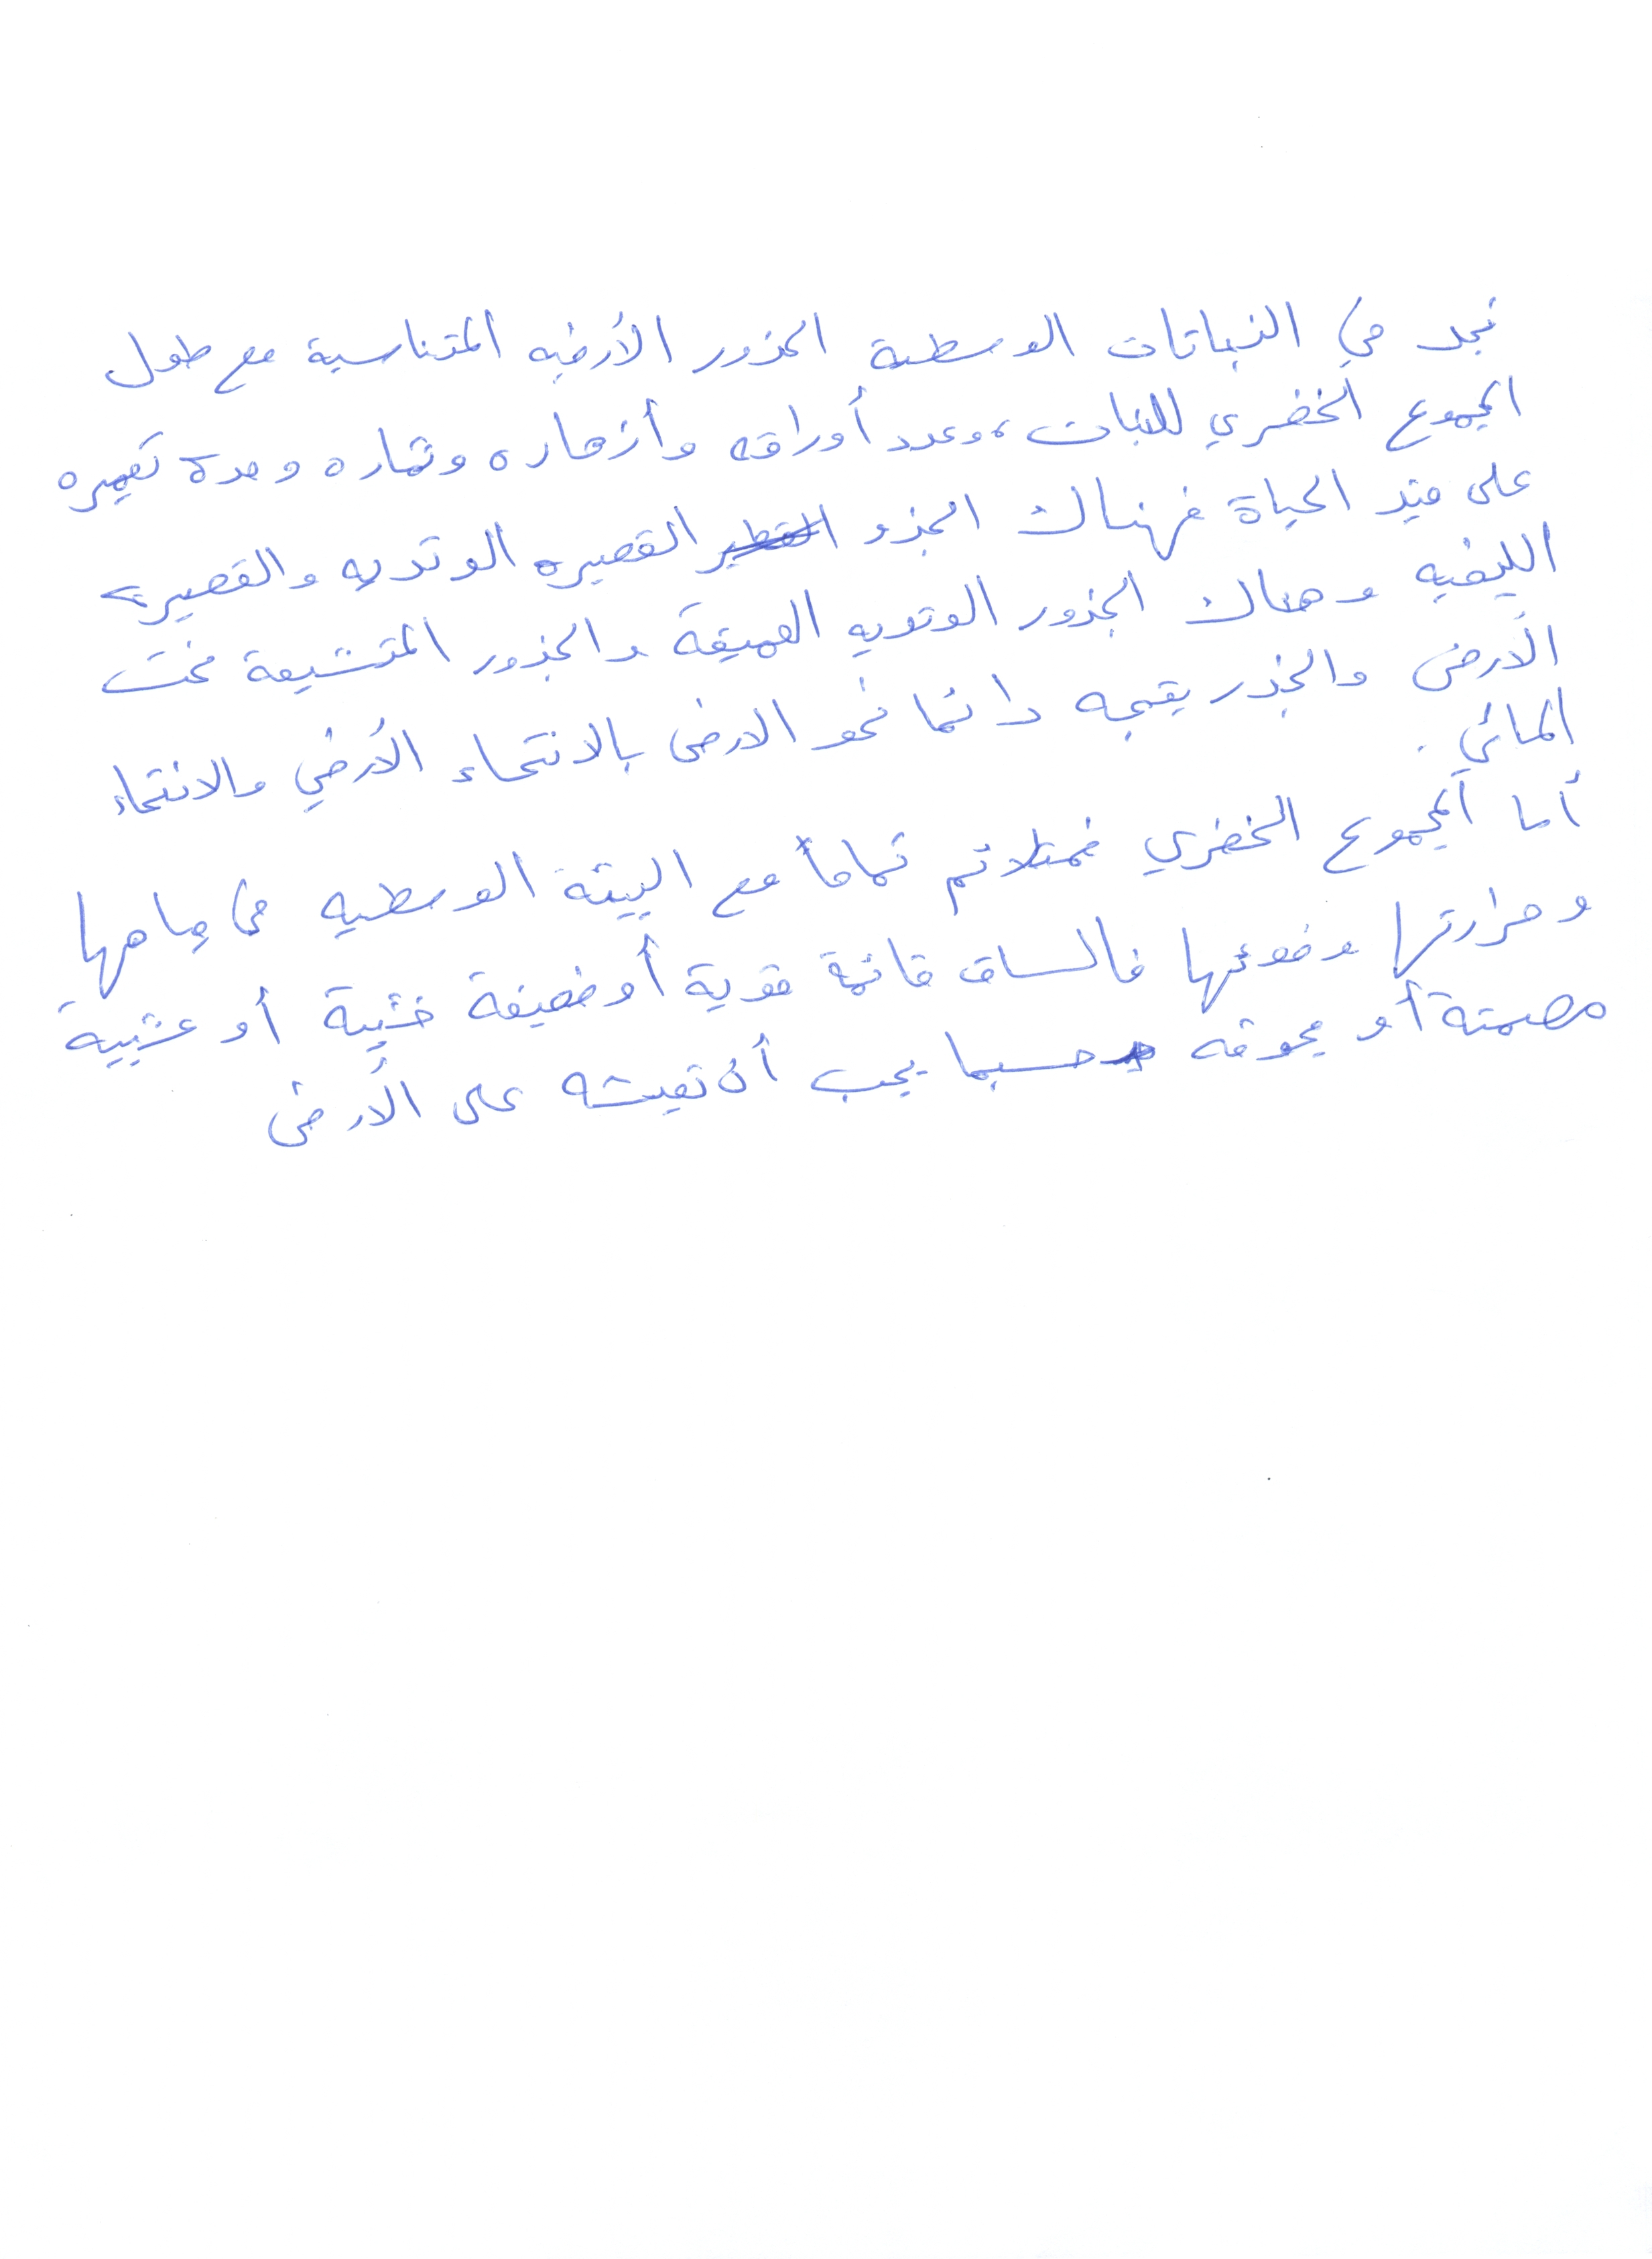 نجد في النباتات الوسطية الجذور الأرضيه المتناسبة مع طول
المجموع الخضري للنبات، وعدد أوراقه وأزهاره وثماره ومدة تعميره
على قيد الحياة فهناك الجذو القصيره الوتديه والقصيرة
الليفيه وهناك الجذور الوتديه العميقة والجذور المتشبعة تحت
الأرض والجذر يتجه دائما نحو الارض بالانتحاء الأرضي والانتحاء
المائي.
أما المجموع الخضري فمتلائم تماماً مع البيئة الوسطيه في مياهها
وحرارتها وضوئها فالساق قائمة قوية أو ضعيفة خشبية أو عشبية
مصمتة أو مجوفه حسبما يجب أن تعيشه على الأرض